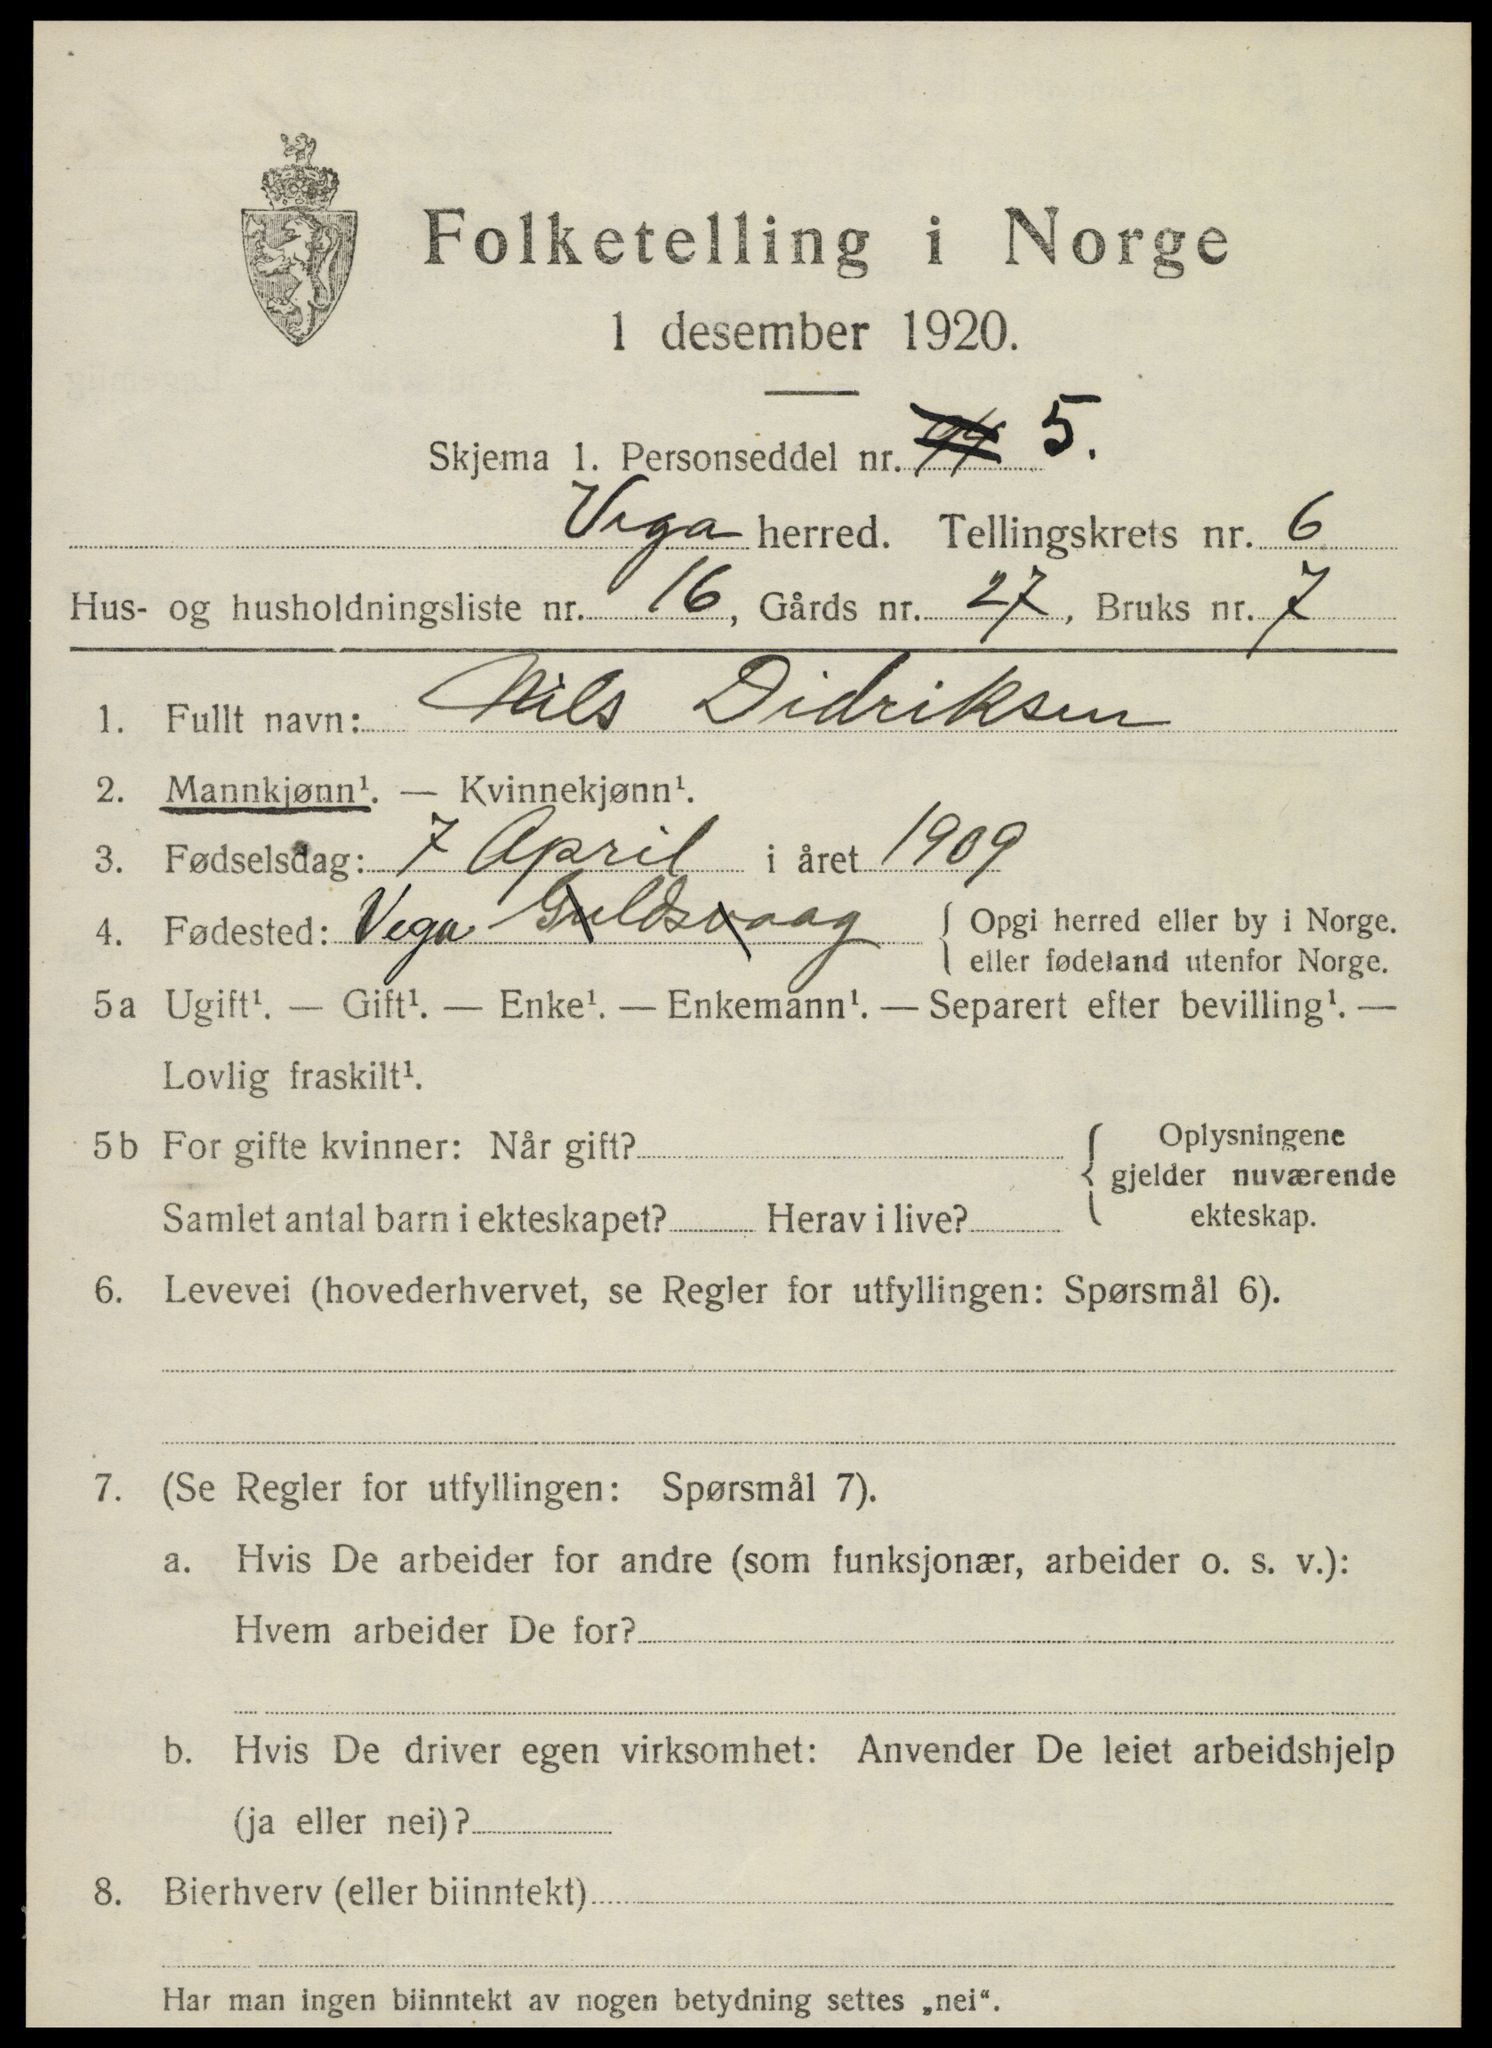 Folketelling i Norge
1 desember 1920.
Skjema 1. Personseddel nr. 5.
Vega herred. Tellingskrets nr. 6
Hus- og husholdningsliste nr. 16, Gårds nr. 27, Bruks nr. 7
1. Fullt navn: Nils Didriksen
2. Mannkjønn¹. — Kvinnekjønn¹.
3. Fødselsdag: 7 April i året 1909
4. Fødested: Vega Guldsvaag { Opgi herred eller by i Norge.
eller fødeland utenfor Norge.
5a Ugift¹. — Gift¹. — Enke¹. — Enkemann¹. — Separert efter bevilling¹. —
Lovlig fraskilt¹.
5b For gifte kvinner: Når gift? { Oplysningene
gjelder nuværende
Samlet antal barn i ekteskapet? Herav i live? ekteskap.
6. Levevei (hovederhvervet, se Regler for utfyllingen: Spørsmål 6).
7. (Se Regler for utfyllingen: Spørsmål 7).
a. Hvis De arbeider for andre (som funksjonær, arbeider o. s. v.):
Hvem arbeider De for?
b. Hvis De driver egen virksomhet: Anvender De leiet arbeidshjelp
(ja eller nei)?
8. Bierhverv (eller biinntekt)
Har man ingen biinntekt av nogen betydning settes „nei“.